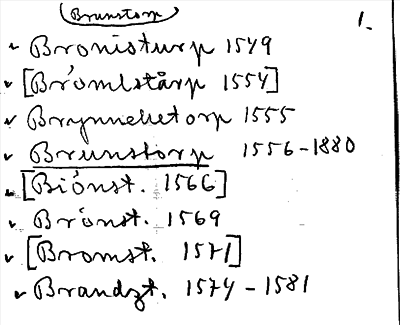 Brunstorp
1.
Bronisturp 1549
[Bromlstårp 1554]
Brynneketorp 1555
Brunstorp 1556-1880
[Biónst. 1566]
Brónst. 1569
[Bromst. 1571]
Brandzt. 1574-1581